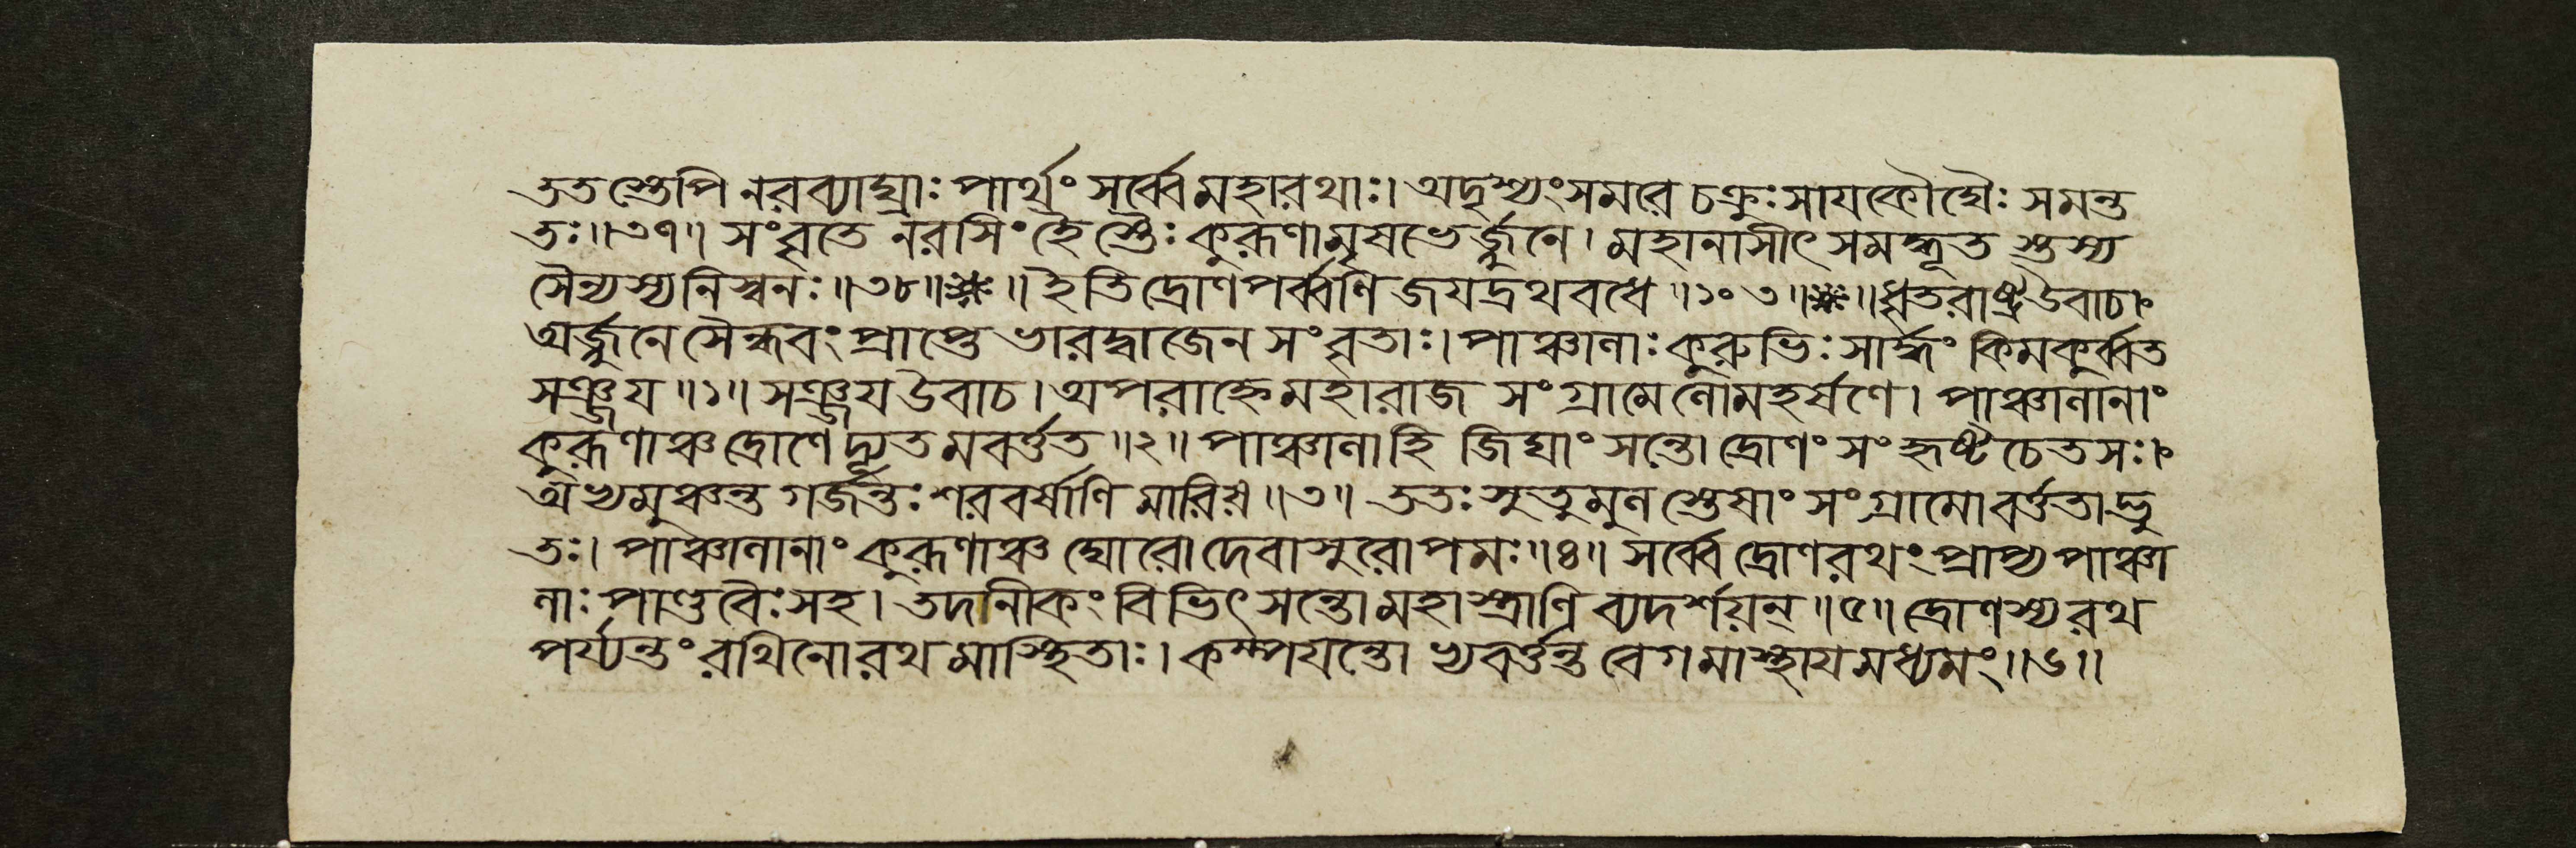 ততস্তেপি নরব্যাঘ্রাঃ পার্থং সর্ব্বে মহারথাঃ। অদৃশ্যং সমরে চক্রুঃ সায়কৌঘৈঃ সমন্ত
তঃ॥৩৭॥ সংবৃতে নরসিংহৈস্তৈঃ কুরূণামৃষভেৰ্জ্জুনে। মহানাসীৎ সমদ্ভূত স্তস্য
সৈন্যস্য নিস্বনঃ॥৩৮॥ ॥ ইতি দ্রোণপর্ব্বণি জয়দ্রথবধে॥১০৩॥ ॥ ধৃতরাষ্ট্র উবাচ।
অর্জ্জুনে সৈন্ধবং প্রাপ্তে ভারদ্বাজেন সংবৃতাঃ। পাঞ্চালাঃ কুরুভিঃ সার্দ্ধং কিমকুর্ব্বত
সঞ্জয়॥১॥ সঞ্জয় উবাচ। অপরাহ্নে মহারাজ সংগ্রামে লোমহর্ষণে। পাঞ্চালানাং
কুরূণাঞ্চ দ্রোণে দ্যূতমবর্ত্তত॥২॥ পাঞ্চালা হি জিঘাংসন্তো দ্রোণং সংহৃষ্টচেতসঃ।
অভ্যমুঞ্চন্ত গর্জন্তঃ শরবর্ষাণি মারিষ॥৩॥ ততঃ সুতুমুল স্তেষাং সংগ্রামো বর্ত্ততাদ্ভু
তঃ। পাঞ্চালানাং কুরূণাঞ্চ ঘোরো দেবাসুরোপমঃ॥৪॥ সর্ব্বে দ্রোণরথং প্রাপ্য পাঞ্চা
লাঃ পাণ্ডবৈঃ সহ। তদনীকং বিভিৎসন্তো মহাস্ত্রাণি ব্যদর্শয়ন্॥৫॥ দ্রোণস্য রথ
পর্য্যন্তং রথিনো রথমাস্থিতাঃ। কম্পয়ন্তো ভ্যবর্ত্তন্ত বেগমাস্থায় মধ্যমং॥৬॥